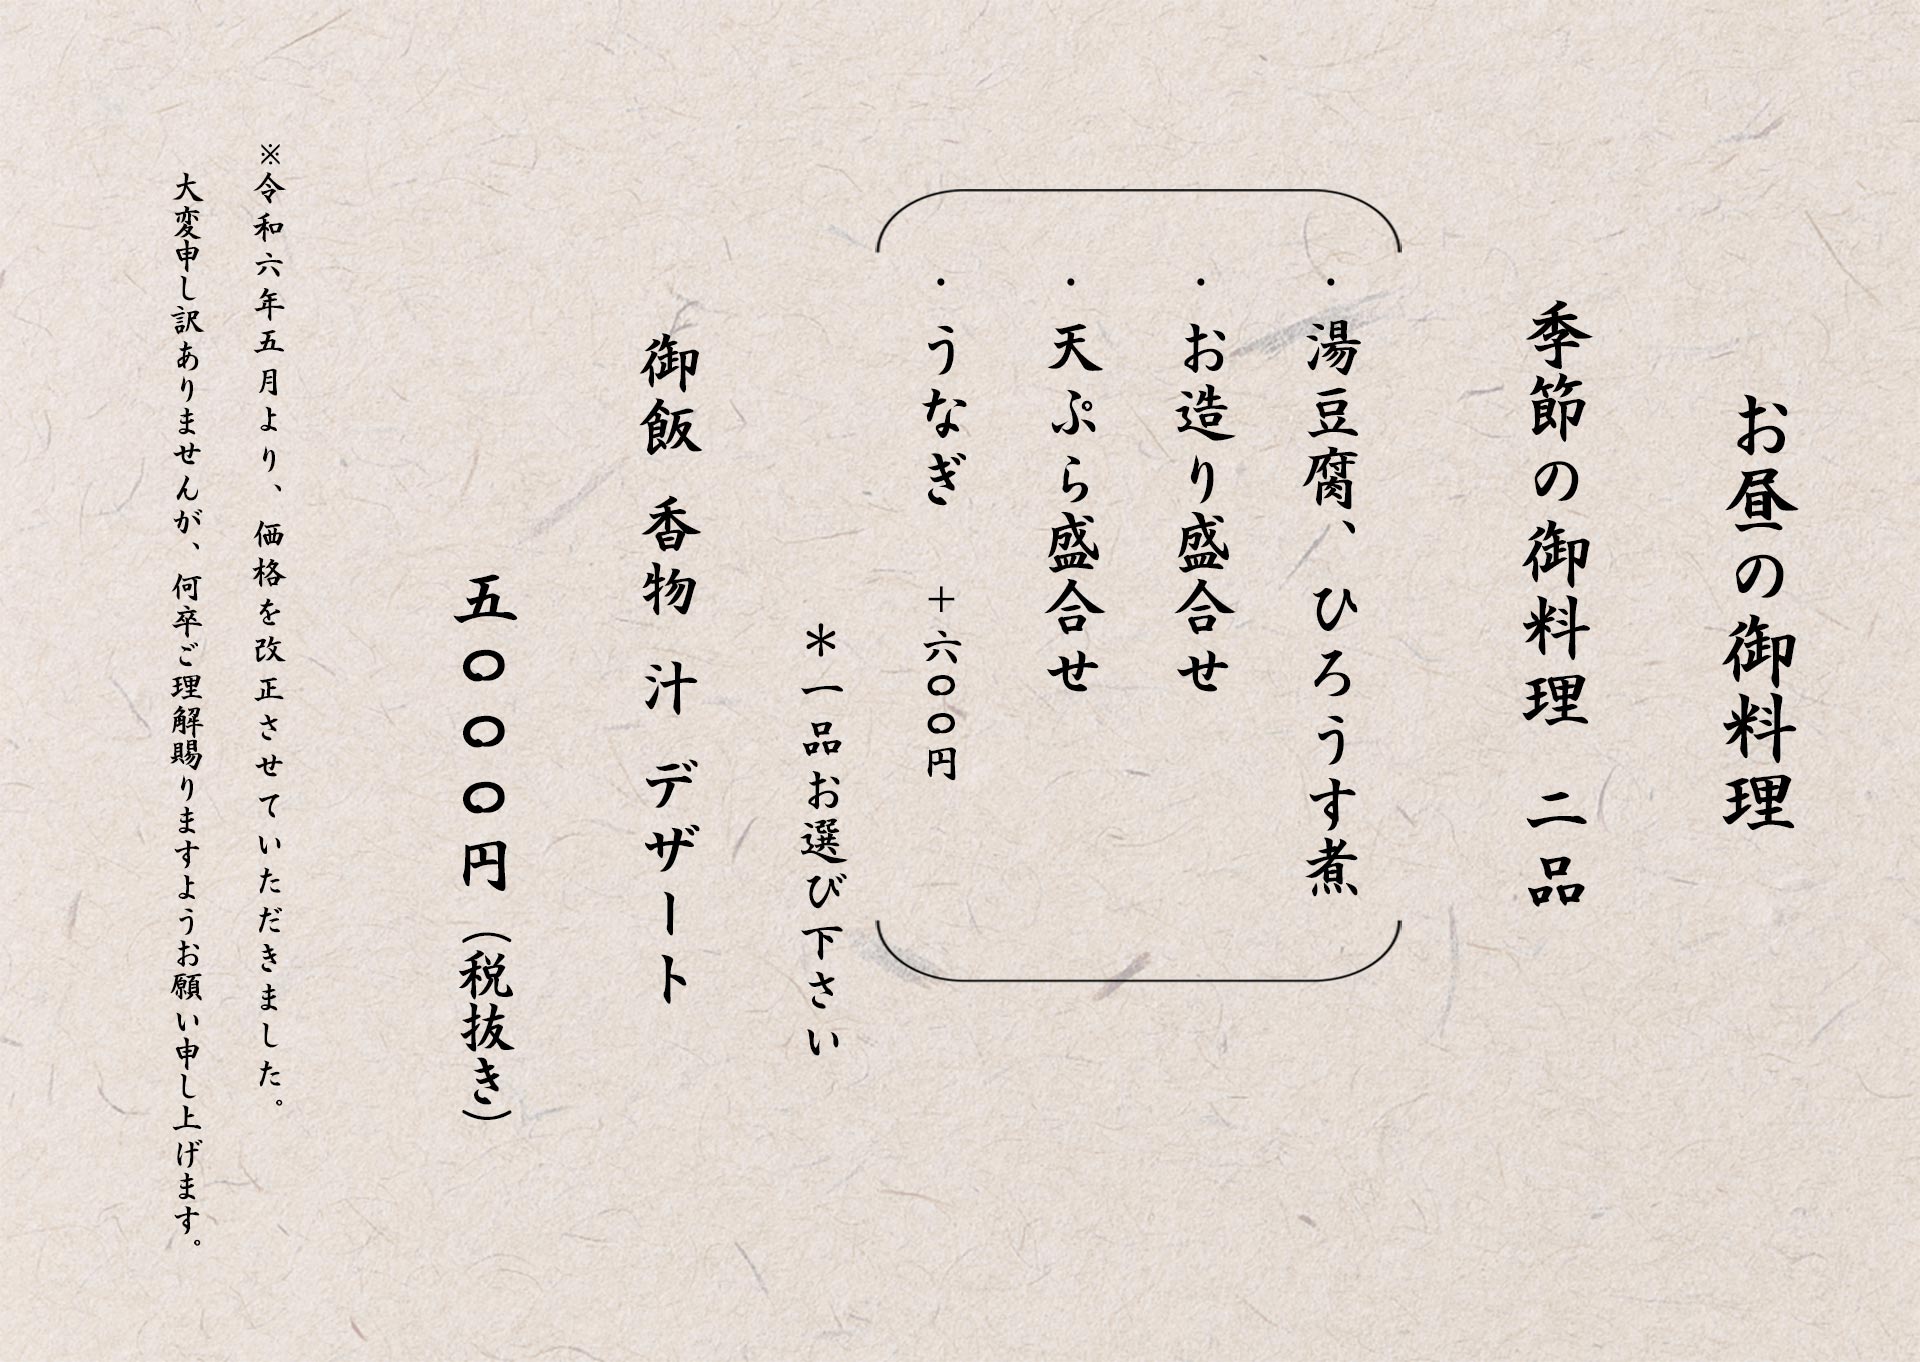 お昼の御料理
季節の御料理 二品
・湯豆腐、ひろうす煮
・お造り盛合せ
・天ぷら盛合せ
・うなぎ +六〇〇円
*一品お選び下さい
御飯 香物 汁 デザート
五〇〇〇円(税抜き)
※令和六年五月より、価格を改正させていただきました。
大変申し訳ありませんが、何卒ご理解賜りますようお願い申し上げます。